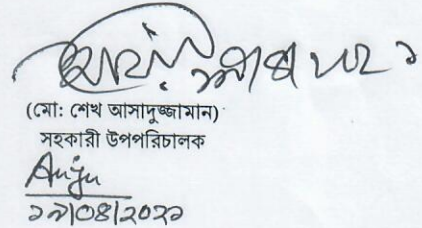 (মো: শেখ আসাদুজ্জামান)
সহকারী উপপরিচালক
Anju
১৯/০৪/২০২১